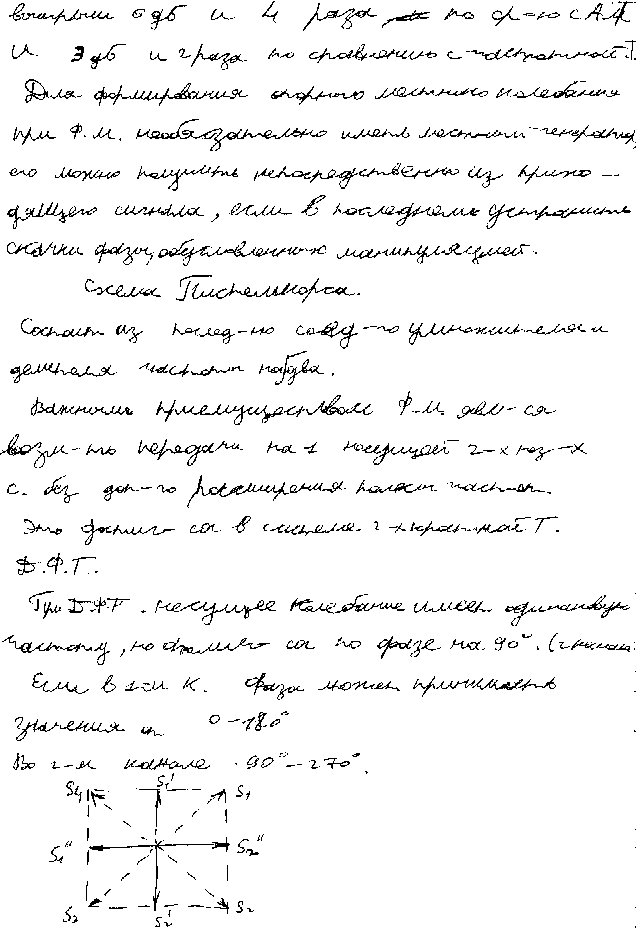 выигрыш 6 дб и 4 раза по ср-ю с АТ
и 3 дб и 2 раза по сравнению с частотной Т.
Для формирования опорного местного колебания
при Ф.М. необязательно иметь местный генератор,
его можно получить непосредственно из прихо-
дящего сигнала, если в последнем устранить
скачки фазы, обусловленные манипуляцией.
Схема Пистелькорса.
Состоит из послед-но соед-го умножителя и
делителя частоты на два.
Важным приемуществом Ф.М. явл-ся
возм-ть передачи на 1 несущей 2-х нез-х
с. без доп-го расширения полосы частот.
Это достиг-ся в системе 2-хкратной Т.
Д.Ф.Т.
При Д.Ф.Т. несущее колебание имеет одинаковую
частоту, но отлич-ся по фазе на 90°. (2 канала
Если в 1-м К. фаза может принимать
значения 0-180°
Во 2-м канале 90°-270°.
S4 S1' S1
S1" S2"
S3 S2' S2